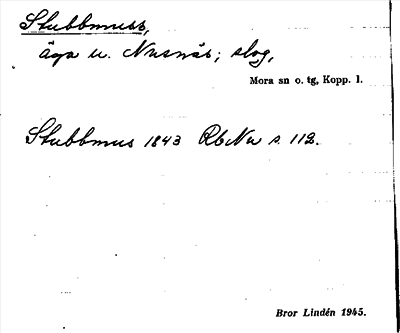 Stubbmuss,
äga u. Nusnäs; slog,
Mora sn o. tg, Kopp. l.
Stubbmus 1843 RbNu s. 112.
Bror Lindén 1945.